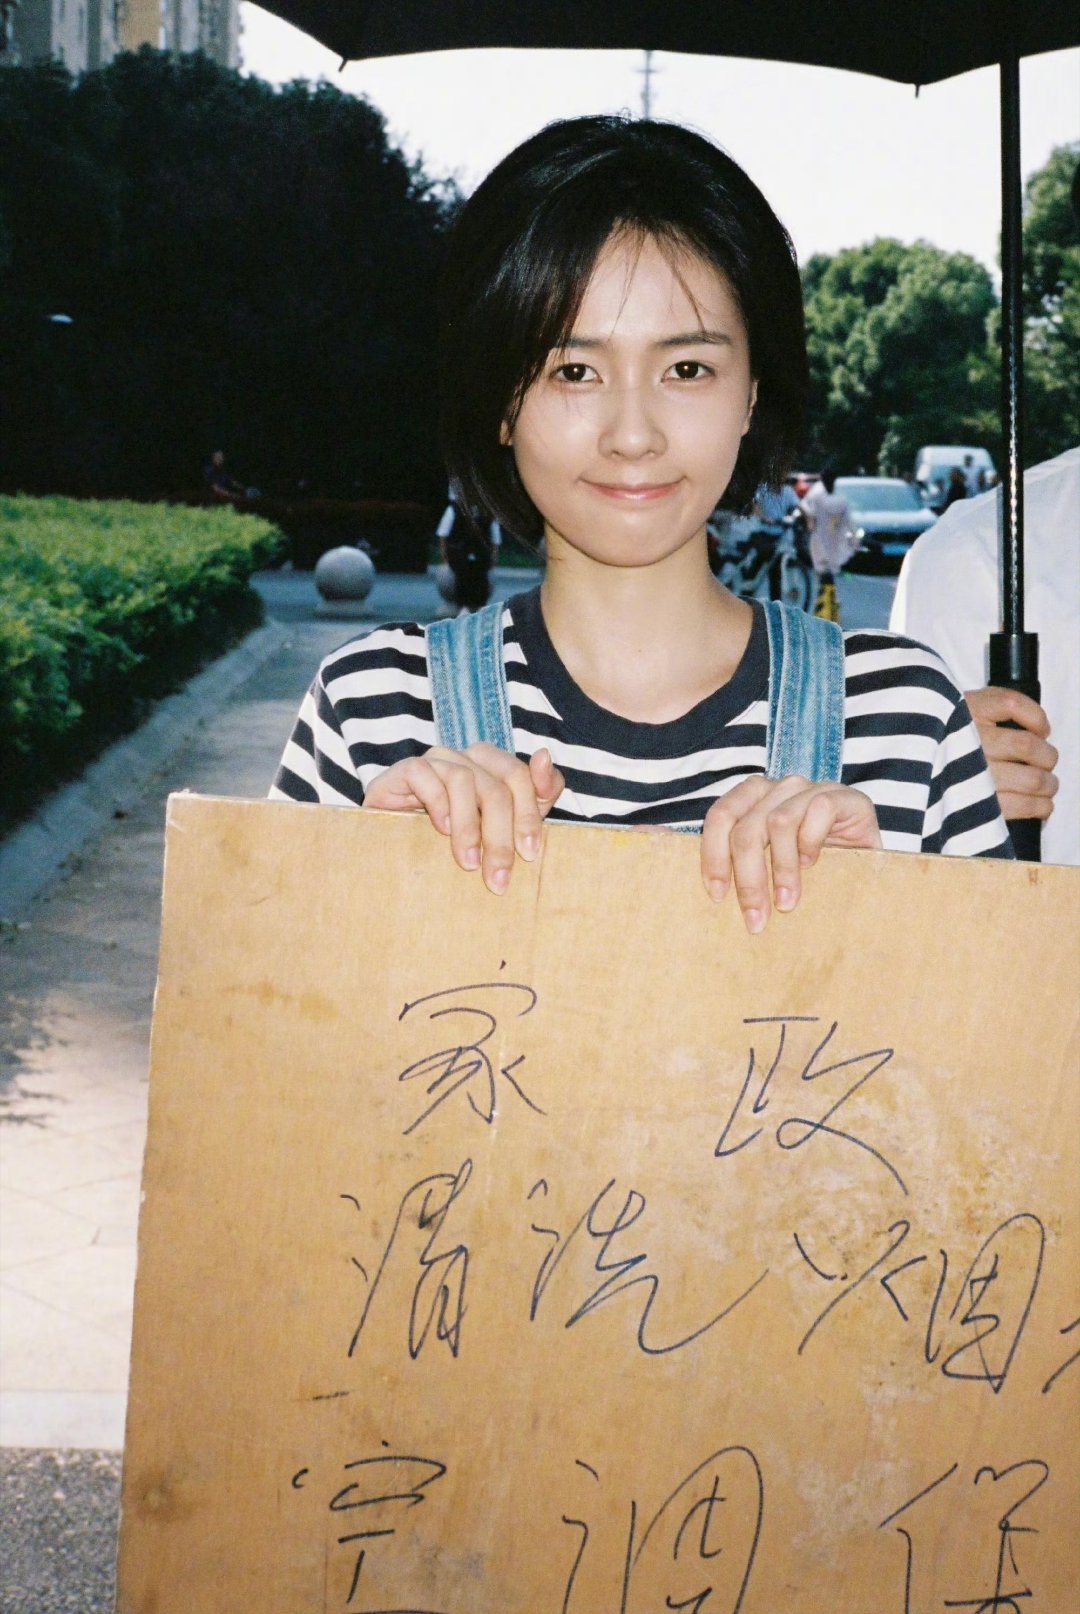 家政
清洗烟
空调保